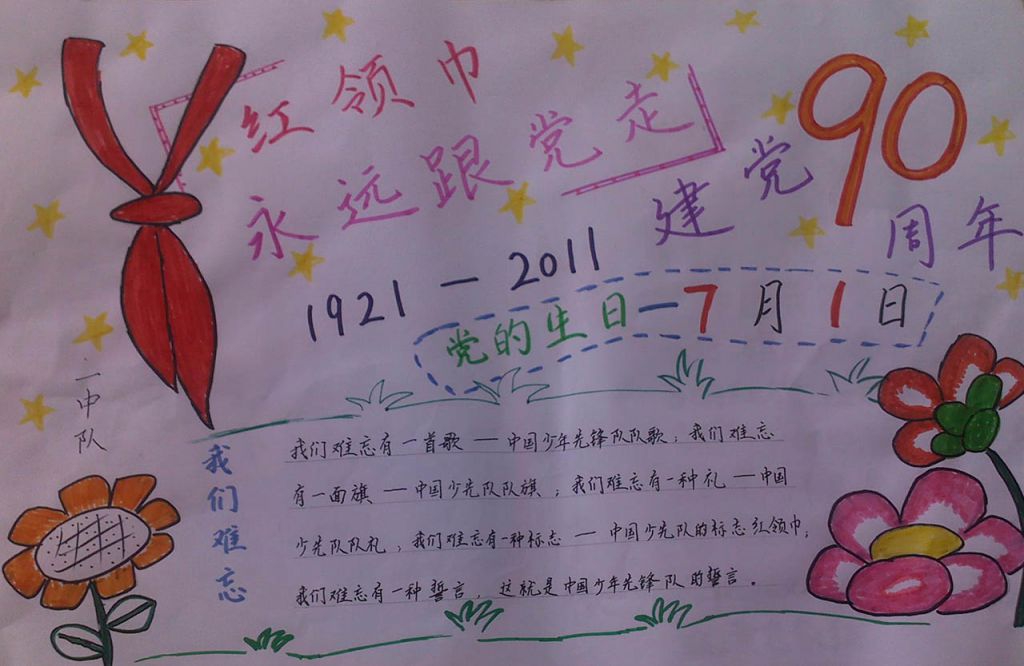 红领巾
永远跟党走
建党90
周年
1921-2011
党的生日-7月1日
一中队
我们难忘
我们难忘有一首歌——中国少年先锋队队歌；我们难忘
有一面旗——中国少先队队旗；我们难忘有一种礼——中国
少先队队礼，我们难忘有一种标志——中国少先队的标志红领巾；
我们难忘有一种誓言，这就是中国少年先锋队的誓言。